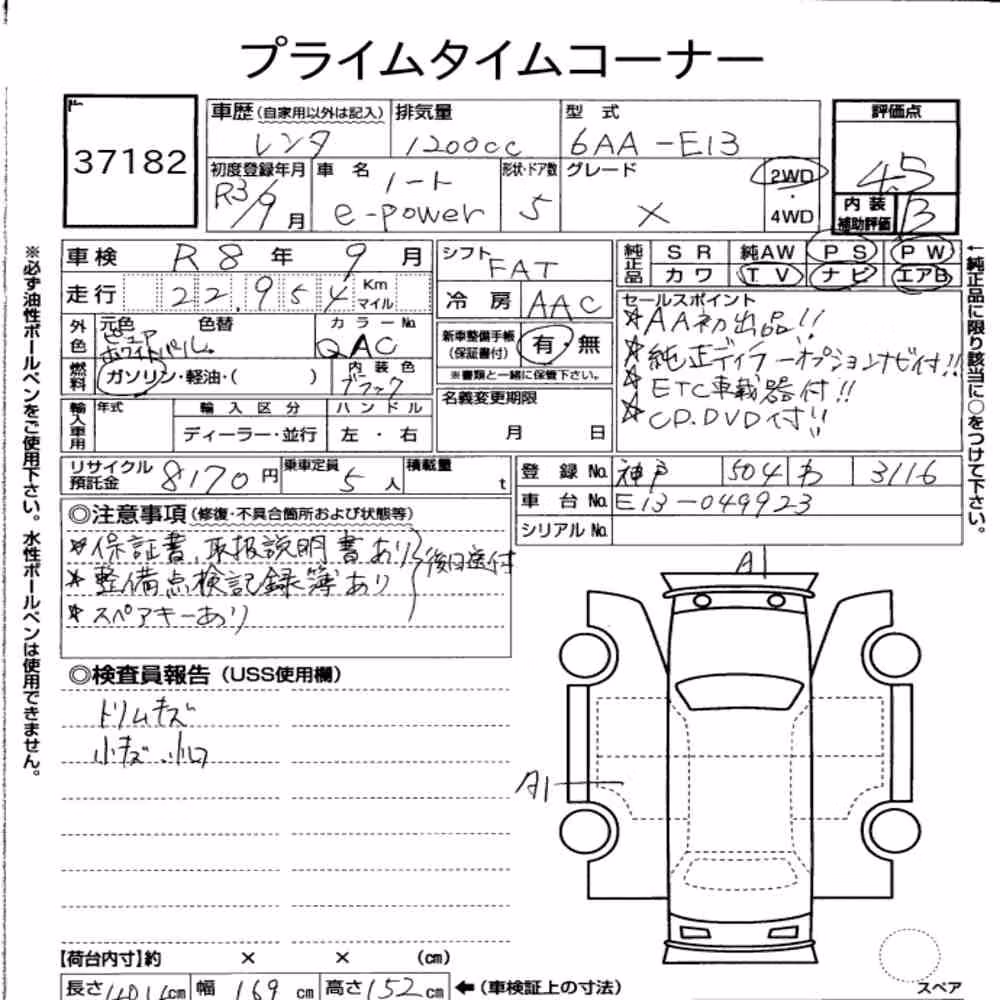 プライムタイムコーナー
37182
車歴(自家用以外は記入)
レンタ
排気量
1200cc
型式
6AA-E13
評価点
4.5
初度登録年月
R3/9月
車名
ノート
e-power
形状・ドア数
5
グレード
X
2WD
・
4WD
内装
補助評価
B
車検 R8年 9月
シフト FAT
純正品 SR 純AW PS PW
カワ TV ナビ エアB
走行 22,954 Km
マイル
冷房 AAC
セールスポイント
☆AA初出品!!
☆純正ディラーオプションナビ付!!
☆ETC車載器付!!
☆CP.DVD付!!
外色 元色 色替 カラーNo.
ピュアホワイトパール QAC
新車整備手帳
(保証書付)
有・無
※書類と一緒に保管下さい。
燃料 ガソリン・軽油・( )
内装色
ブラック
名義変更期限
月 日
輸入車用 年式 輸入区分 ハンドル
ディーラー・並行 左・右
リサイクル
預託金 8170円
乗車定員 5人
積載量 t
登録No. 神戸 504 わ 3116
車台No. E13-049923
シリアルNo.
◎注意事項(修復・不具合箇所および状態等)
☆保証書、取扱説明書あり
☆整備点検記録簿あり
☆スペアキーあり
後日送付
◎検査員報告(USS使用欄)
トリムキズ
小キズ.小凹
A1
A1
【荷台内寸】約 × × (cm)
長さ 401.4cm 幅 169cm 高さ 152cm ←(車検証上の寸法)
スペア
※必ず油性ボールペンをご使用下さい。水性ボールペンは使用できません。
←純正品に限り該当に○をつけて下さい。